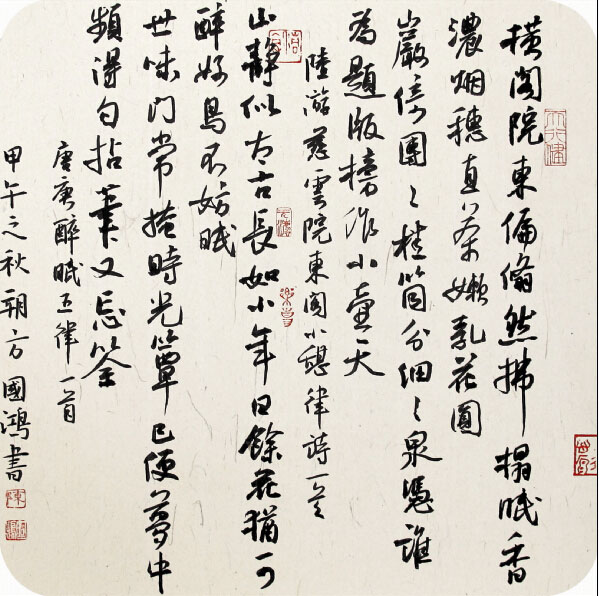 橫閣院東偏翛然拂榻眠香
濃烟穗直茶嫩乳花圓
巖倚團〻桂筒分細〻泉憑誰
為題版榜作小壺天
陸游慈雲院東閣小憩律詩一首
山靜似太古長如小年日餘花猶可
醉好鳥不妨眠
世味门常掩時光簟已便夢中
頻得句拈筆又忘筌
唐庚醉眠五律一首
甲午之秋朔方國鴻書